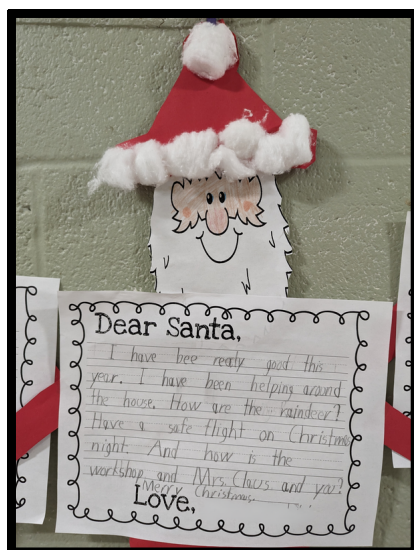 Dear Santa,
I have bee really good this
year. I have been helping around
the house. How are the raindeer?
Have a safe flight on Christmas
night. And how is the
workshop and Mrs. Claus and you?
Merry Christmas.
Love,